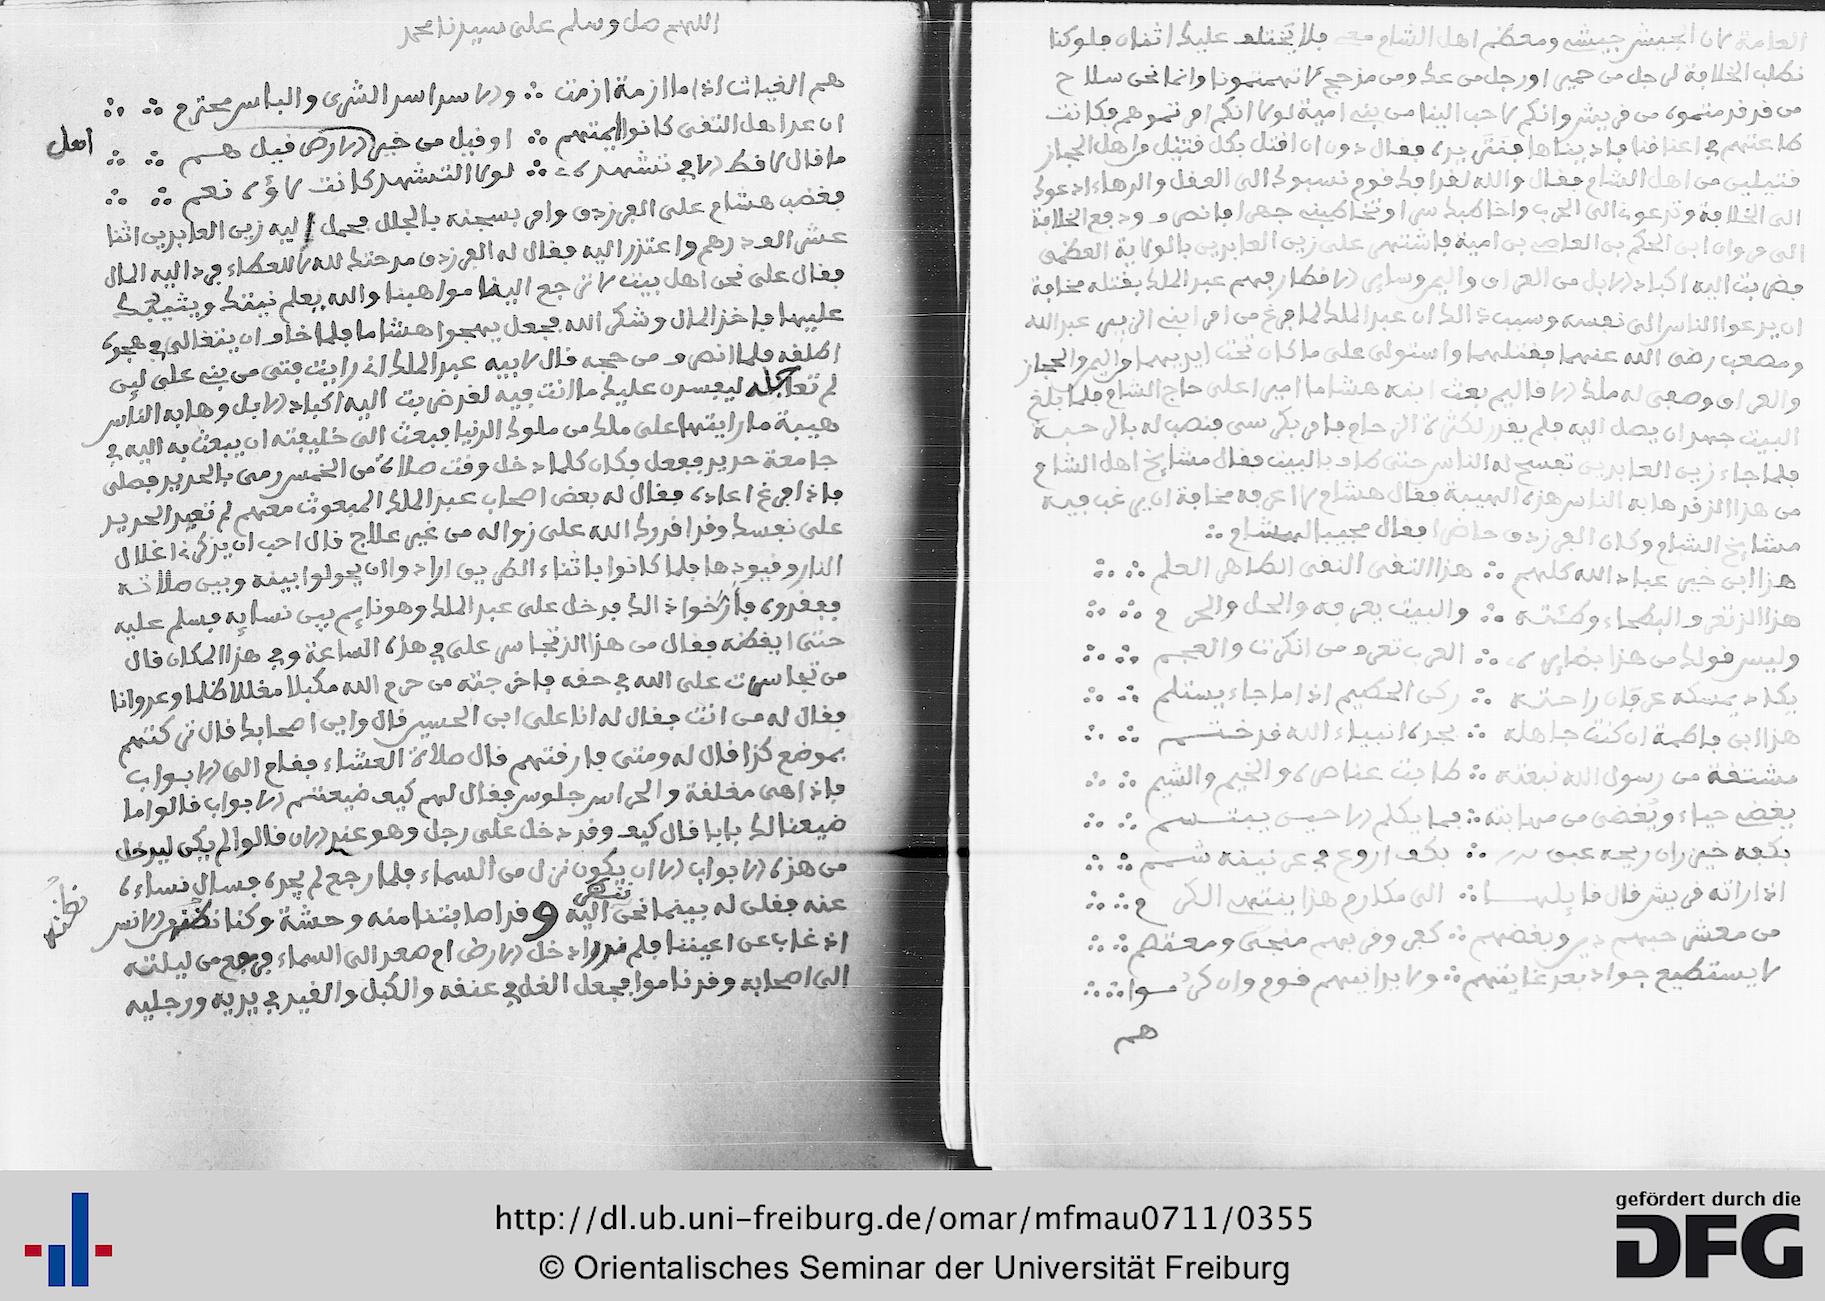 العامة لان الجيش جيشه ومعظم اهل الشام معه فلا يختلف عليك اثنان فلو كنا
نطلب الخلافة لرجل من حمير او رجل من عك ومن مذحج لاتهمتمونا وانما نحن سلاح
من قد قدمتموه من قريش وانكم لاحب الينا من بني امية لولا انكم
طاعتهم في اعناقنا فقال دون ان اقتل بكل قتيل من اهل الحجاز
قتيلين من اهل الشام فقال والله لقد افك قوم نسبوك الى العقل والدهاء ادعوك
الى الخلافة وتدعوني الى الحرب واخاطبك سرا وتخاطبني جهرا فانصرف ودفع الخلافة
الى مروان ابن الحكم بن العاصي بن امية فاشتهر على زين العابدين بالولاية العظمى
فضربت اليه اكباد الابل من العراق واليمن وساير الاقطار فهم عبد الملك بقتله مخافة
ان يدعوا الناس الى نفسه وسبب ذالك ان عبد الملك لما فرغ من امر ابني الزبير عبد الله
ومصعب رضى الله عنهما بقتلهما واستولى على ما كان تحت ايديهما واليمن والحجاز
والعراق وصفى له ملك الاقاليم بعث ابنه هشاما اميرا على حاج الشام فلما بلغ
البيت جهد ان يصل اليه فلم يقدر لكثرة الزحام فامر بكرسى فنصب له بالرحبة
فلما جاء زين العابدين تفسح له الناس حتى طاف بالبيت فقال مشايخ اهل الشام
من هذا الذى قد هابه الناس هذه الهيبة فقال هشام لا اعرفه مخافة ان يرغب فيه
مشايخ الشام وكان الفرزدق حاضرا فقال مجيبا لهشام ∴
هذا ابن خير عباد الله كلهم ∴ هذا التقى النقى الطاهر العلم ∴ ∴
هذا الذ تعرف البطحاء وطئته ∴ والبيت يعرفه والحل والحرم ∴ ∴
وليس قولك من هذا بضايره ∴ العرب تعرف من انكرت والعجم ∴ ∴
يكاد يمسكه عرفان راحته ∴ ركن الحطيم اذا ما جاء يستلم ∴ ∴
هذا ابن فاطمة ان كنت جاهله ∴ بجده انبياء الله قد ختم ∴ ∴
مشتقة من رسول الله نبعته ∴ طابت عناصره والخيم والشيم ∴ ∴
يغضى حياء ويغضى من مهابته ∴ فما يكلم الا حين يبتسم ∴ ∴
بكفه خيزران ريحه عبق ∴ بكف اروع في عرنينه شمم ∴ ∴
اذا راته قريش قال قايلها ∴ الى مكارم هذا ينتهي الكرم ∴ ∴
من معشر حبهم دين وبغضهم ∴ كفر وقربهم منجى ومعتصم ∴ ∴
لا يستطيع جواد بعد غايتهم ∴ ولا يدانيهم قوم وان كرموا ∴ ∴
هم
اللهم صل وسلم على سيدنا محمد
هم الغياث اذا ما ازمة ازمت ∴ والاسد اسد الشرى والباس محترم ∴ ∴
ان عد اهل التقى كانوا ايمتهم ∴ او قيل من خير الارض قيل هم ∴ ∴
اهل
ما قال لا قط الا في تشهده ∴ لولا التشهد كانت لاؤه نعم ∴ ∴
فغضب هشام على الفرزدق وامر بسجنه فحمل اليه زين العابدين اثنا
عشر الف درهم واعتذر اليه فقال له الفرزدق مدحتك لله لا للعطاء فرد اليه المال
فقال على نحن اهل بيت لا ترجع الينا مواهبنا والله يعلم نيتك ويثيبك
عليها فاخذ المال وشكر الله فجعل يهجوا هشاما فلما خاف ان يتغالى في هجوه
اطلقه فلما انصرف من حجه قال لابيه عبد الملك اني رايت فتى من بني على لين
لم تعاجله ليفسدن عليك ما انت فيه لقد ضربت اليه اكباد الابل وهابه الناس
هيبة ما رايتها على ملك من ملوك الدنيا فبعث الى خليفته ان يبعث به اليه في
جامعة حديد ففعل فكان كلما دخل وقت صلاة من الخمس رمى بالحديد فصلى
فاذا فرغ اعاده فقال له بعض اصحاب عبد الملك المبعوث معهم لم تعيد الحديد
على نفسك وقد اقدرك الله على زواله من غير علاج قال احب ان يذكرني اغلال
النار وقيودها فلما كانوا باثناء الطريق ارادوا ان يحولوا بينه وبين صلاته
ففقدوه فارخوا ذالك فدخل على عبد الملك وهو نايم بين نسايه فسلم عليه
حتى ايقظه فقال من هذا الذ تجاسر على في هذه الساعة وفي هذا المكان قال
من تجاسرت على الله في حقه فاخرجته من حرم الله مكبلا مغللا ظلما وعدوانا
فقال له من انت فقال له انا على ابن الحسين قال واين اصحابك قال تركتهم
بموضع كذا قال له ومتى فارقتهم قال صلاة العشاء فقام الى الابواب
فاذا هى مغلقة والحراس جلوس فقال لهم كيف ضيعتم الابواب قالوا ما
ضيعنا لك بابا قال كيف وقد دخل على رجل وهو عند الان قالوا لم يكن ليدخل
من هذه الابواب الا ان يكون نزل من السماء فلما رجع لم يجده فسال نساءه
عنه فقلن له بينما نحن اليه وقد اصابتنا منه وحشة وكنا
اذ غاب عن اعيننا فلم ندر ادخل الارض ام صعد الى السماء فرجع من ليلته
الى اصحابه وقد ناموا فجعل الغل في عنقه والكبل والقيد في يديه ورجليه
http://dl.ub.uni-freiburg.de/omar/mfmau0711/0355
© Orientalisches Seminar der Universität Freiburg
gefördert durch die
DFG